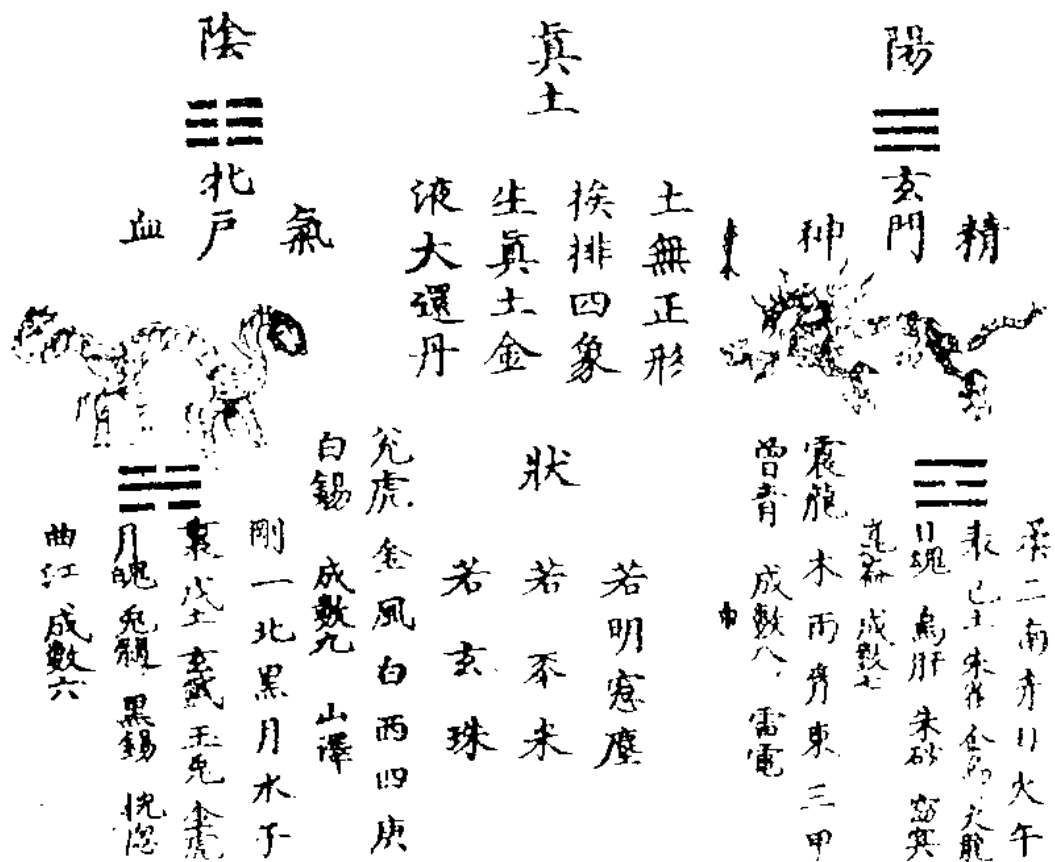 陽
玄門
精
神
柔二南赤日火午
表己土朱雀金烏火龍
日魂 烏肝 朱砂 窈冥
崑崙 成數七
震龍木雨青東三甲
曾青 成數八 雷電
眞土
土無正形
挨排四象
生眞土金
液大還丹
狀
若明窓塵
若黍米
若玄珠
陰
牝戶
氣
血
兊虎金風白西四庚
白錫 成數九 山澤
剛一北黑月水子
裏戊土玄武玉兔水虎
月魄 兔髓 黑錫 恍惚
曲江 成數六